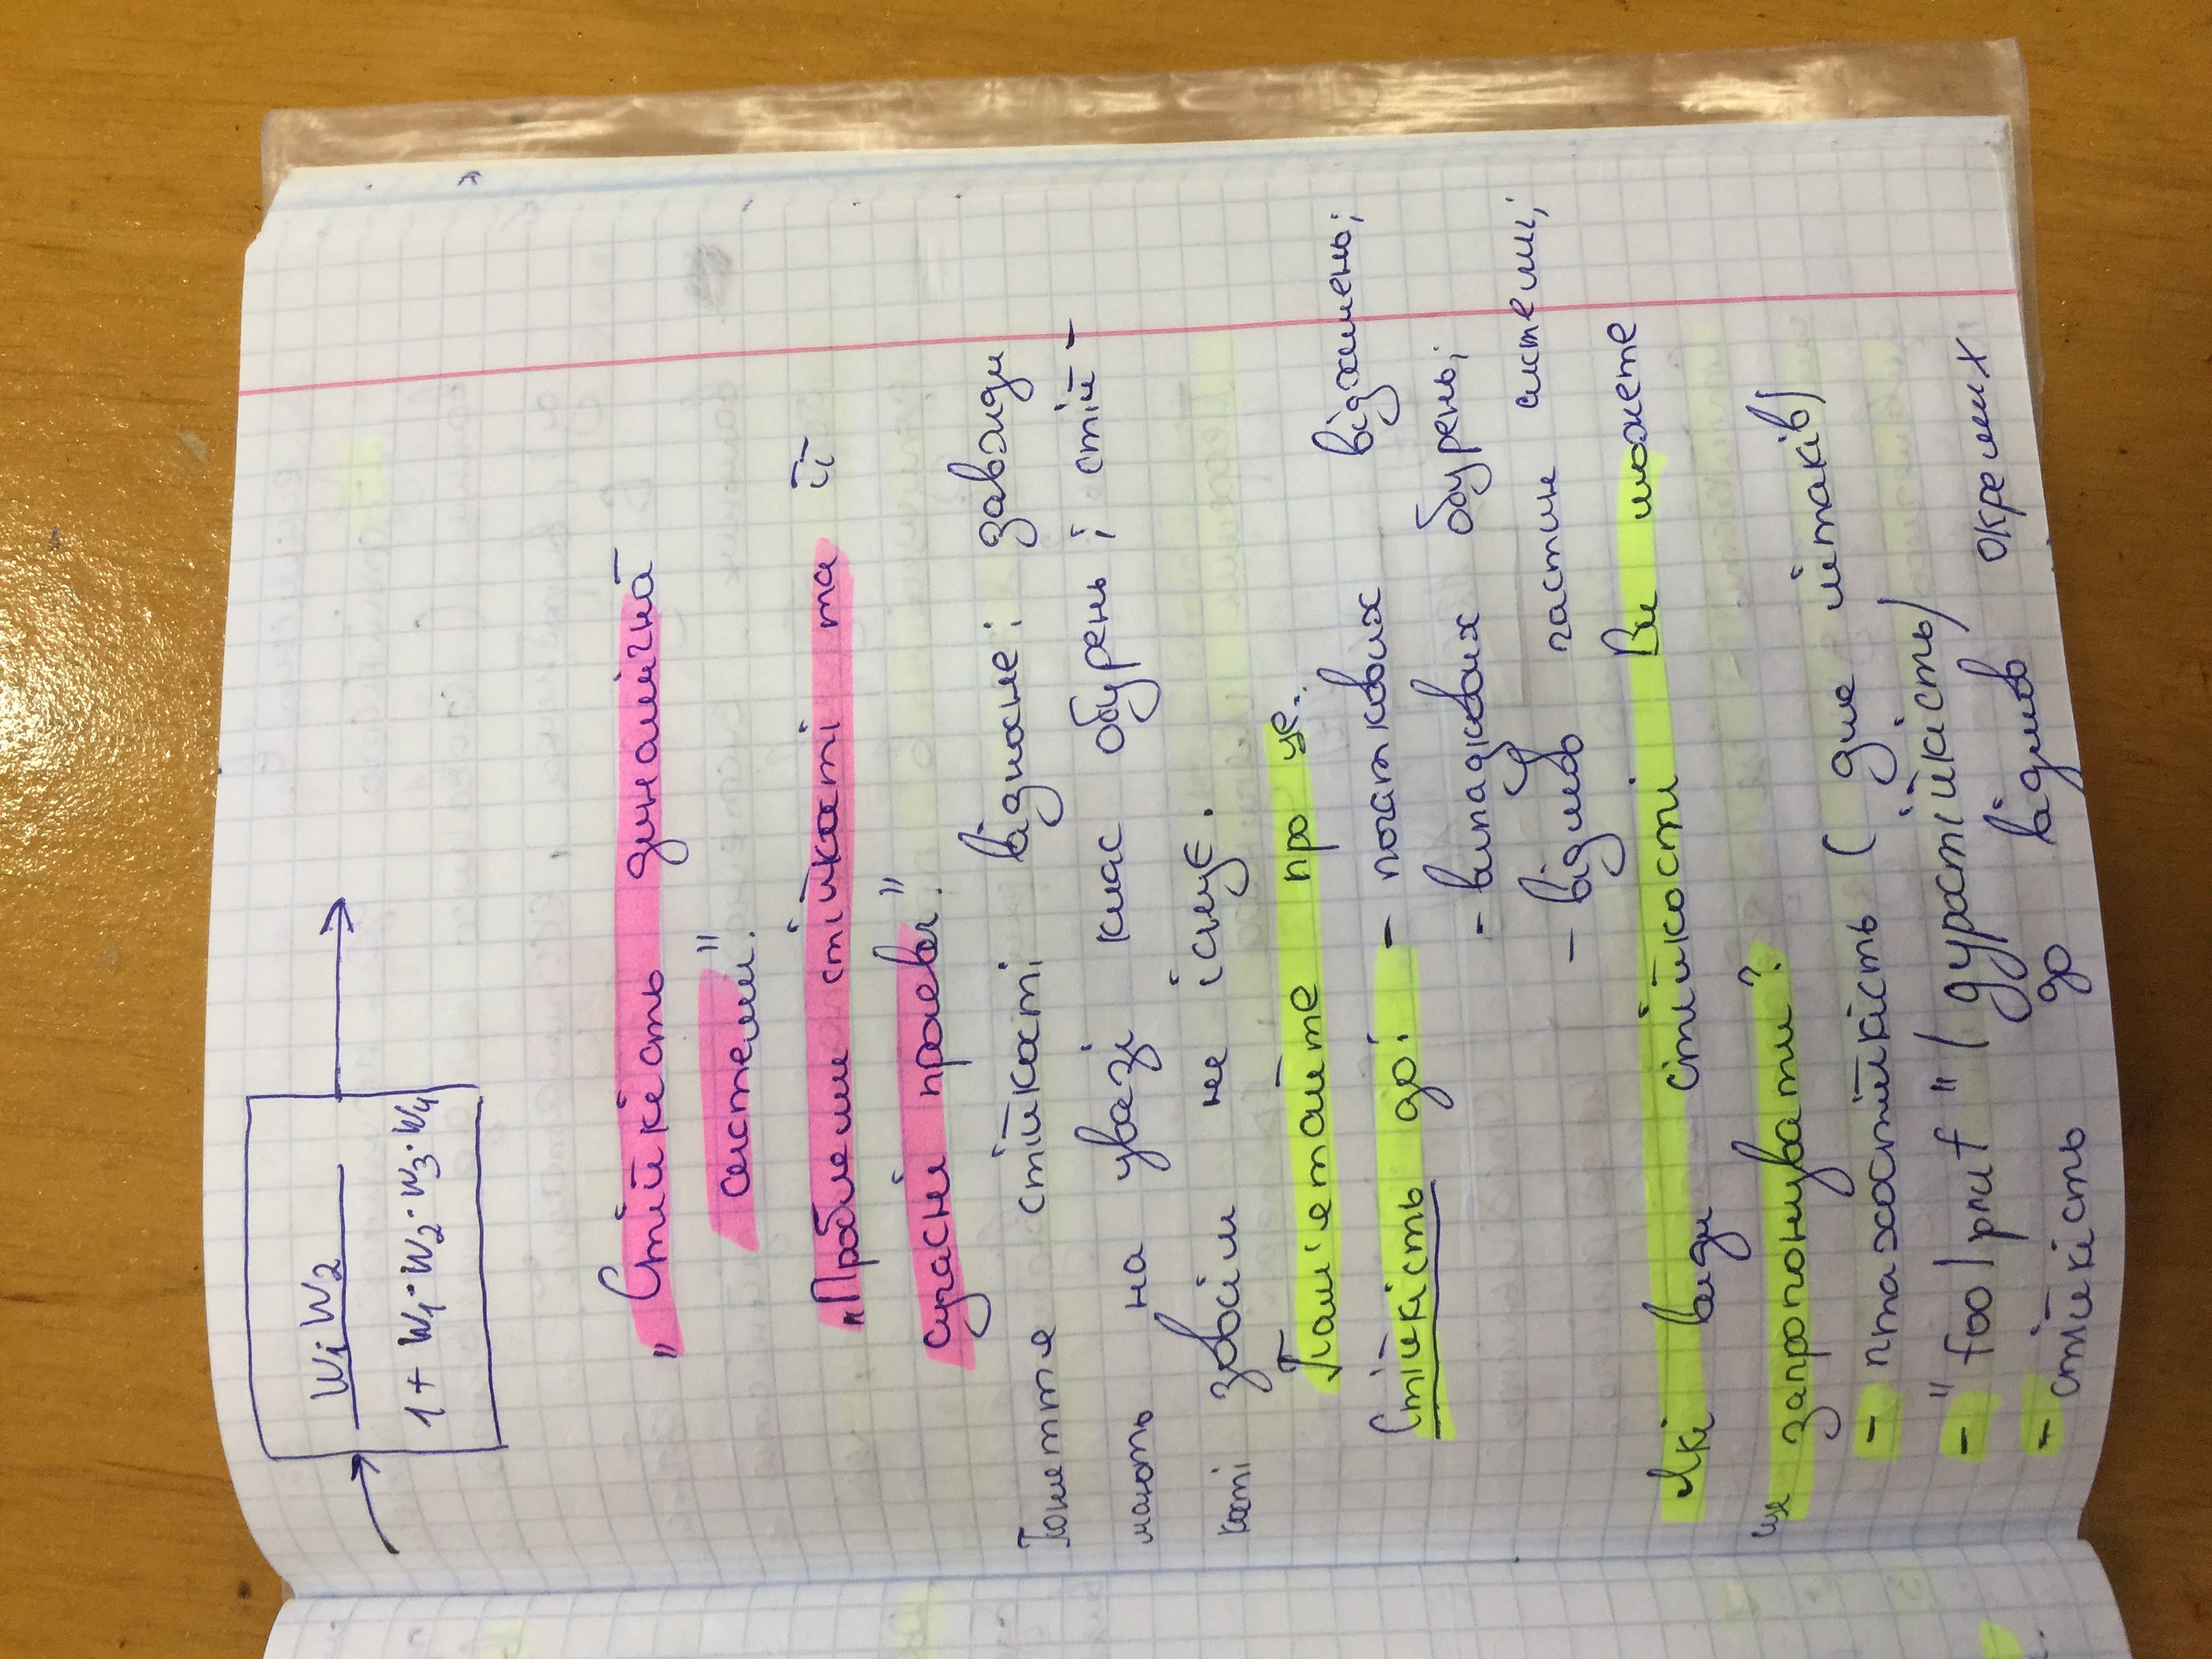 W1 W2
1 + W1 · W2 · W3 · W4
„Стійкість динамічна
системи".
„Проблеми стійкості та її
сучасні прояви."
Поняття стійкості відносне; завжди
мають на увазі клас обурень; стій-
кості зовсім не існує.
Пам'ятайте про це.
Стійкість до: - початкових відхилень;
- випадкових обурень;
- відмов частин системи;
Які види стійкості Ви можете
ще запропонувати?
- птахостійкість ( для літаків)
- "foolpruf" (дуростійкість)
- стійкість до відмов окремих